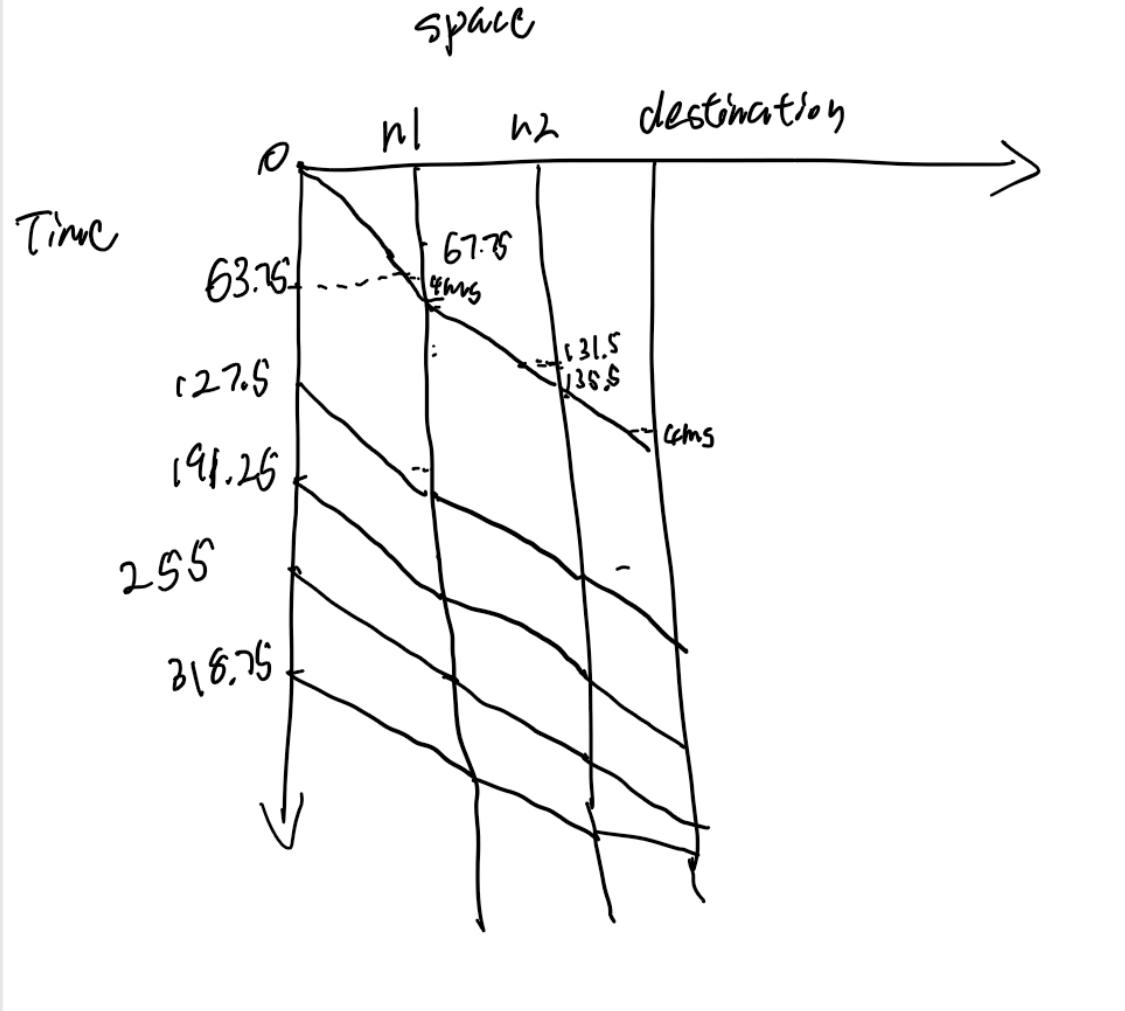 space
n1 n2 destination
0
Time
67.75
63.75
4ms
131.5
135.5
127.5
4ms
191.25
255
318.75